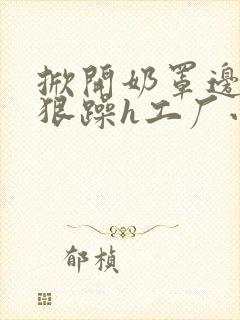 掀開奶罩邊
狠躁h工厂
郁楨